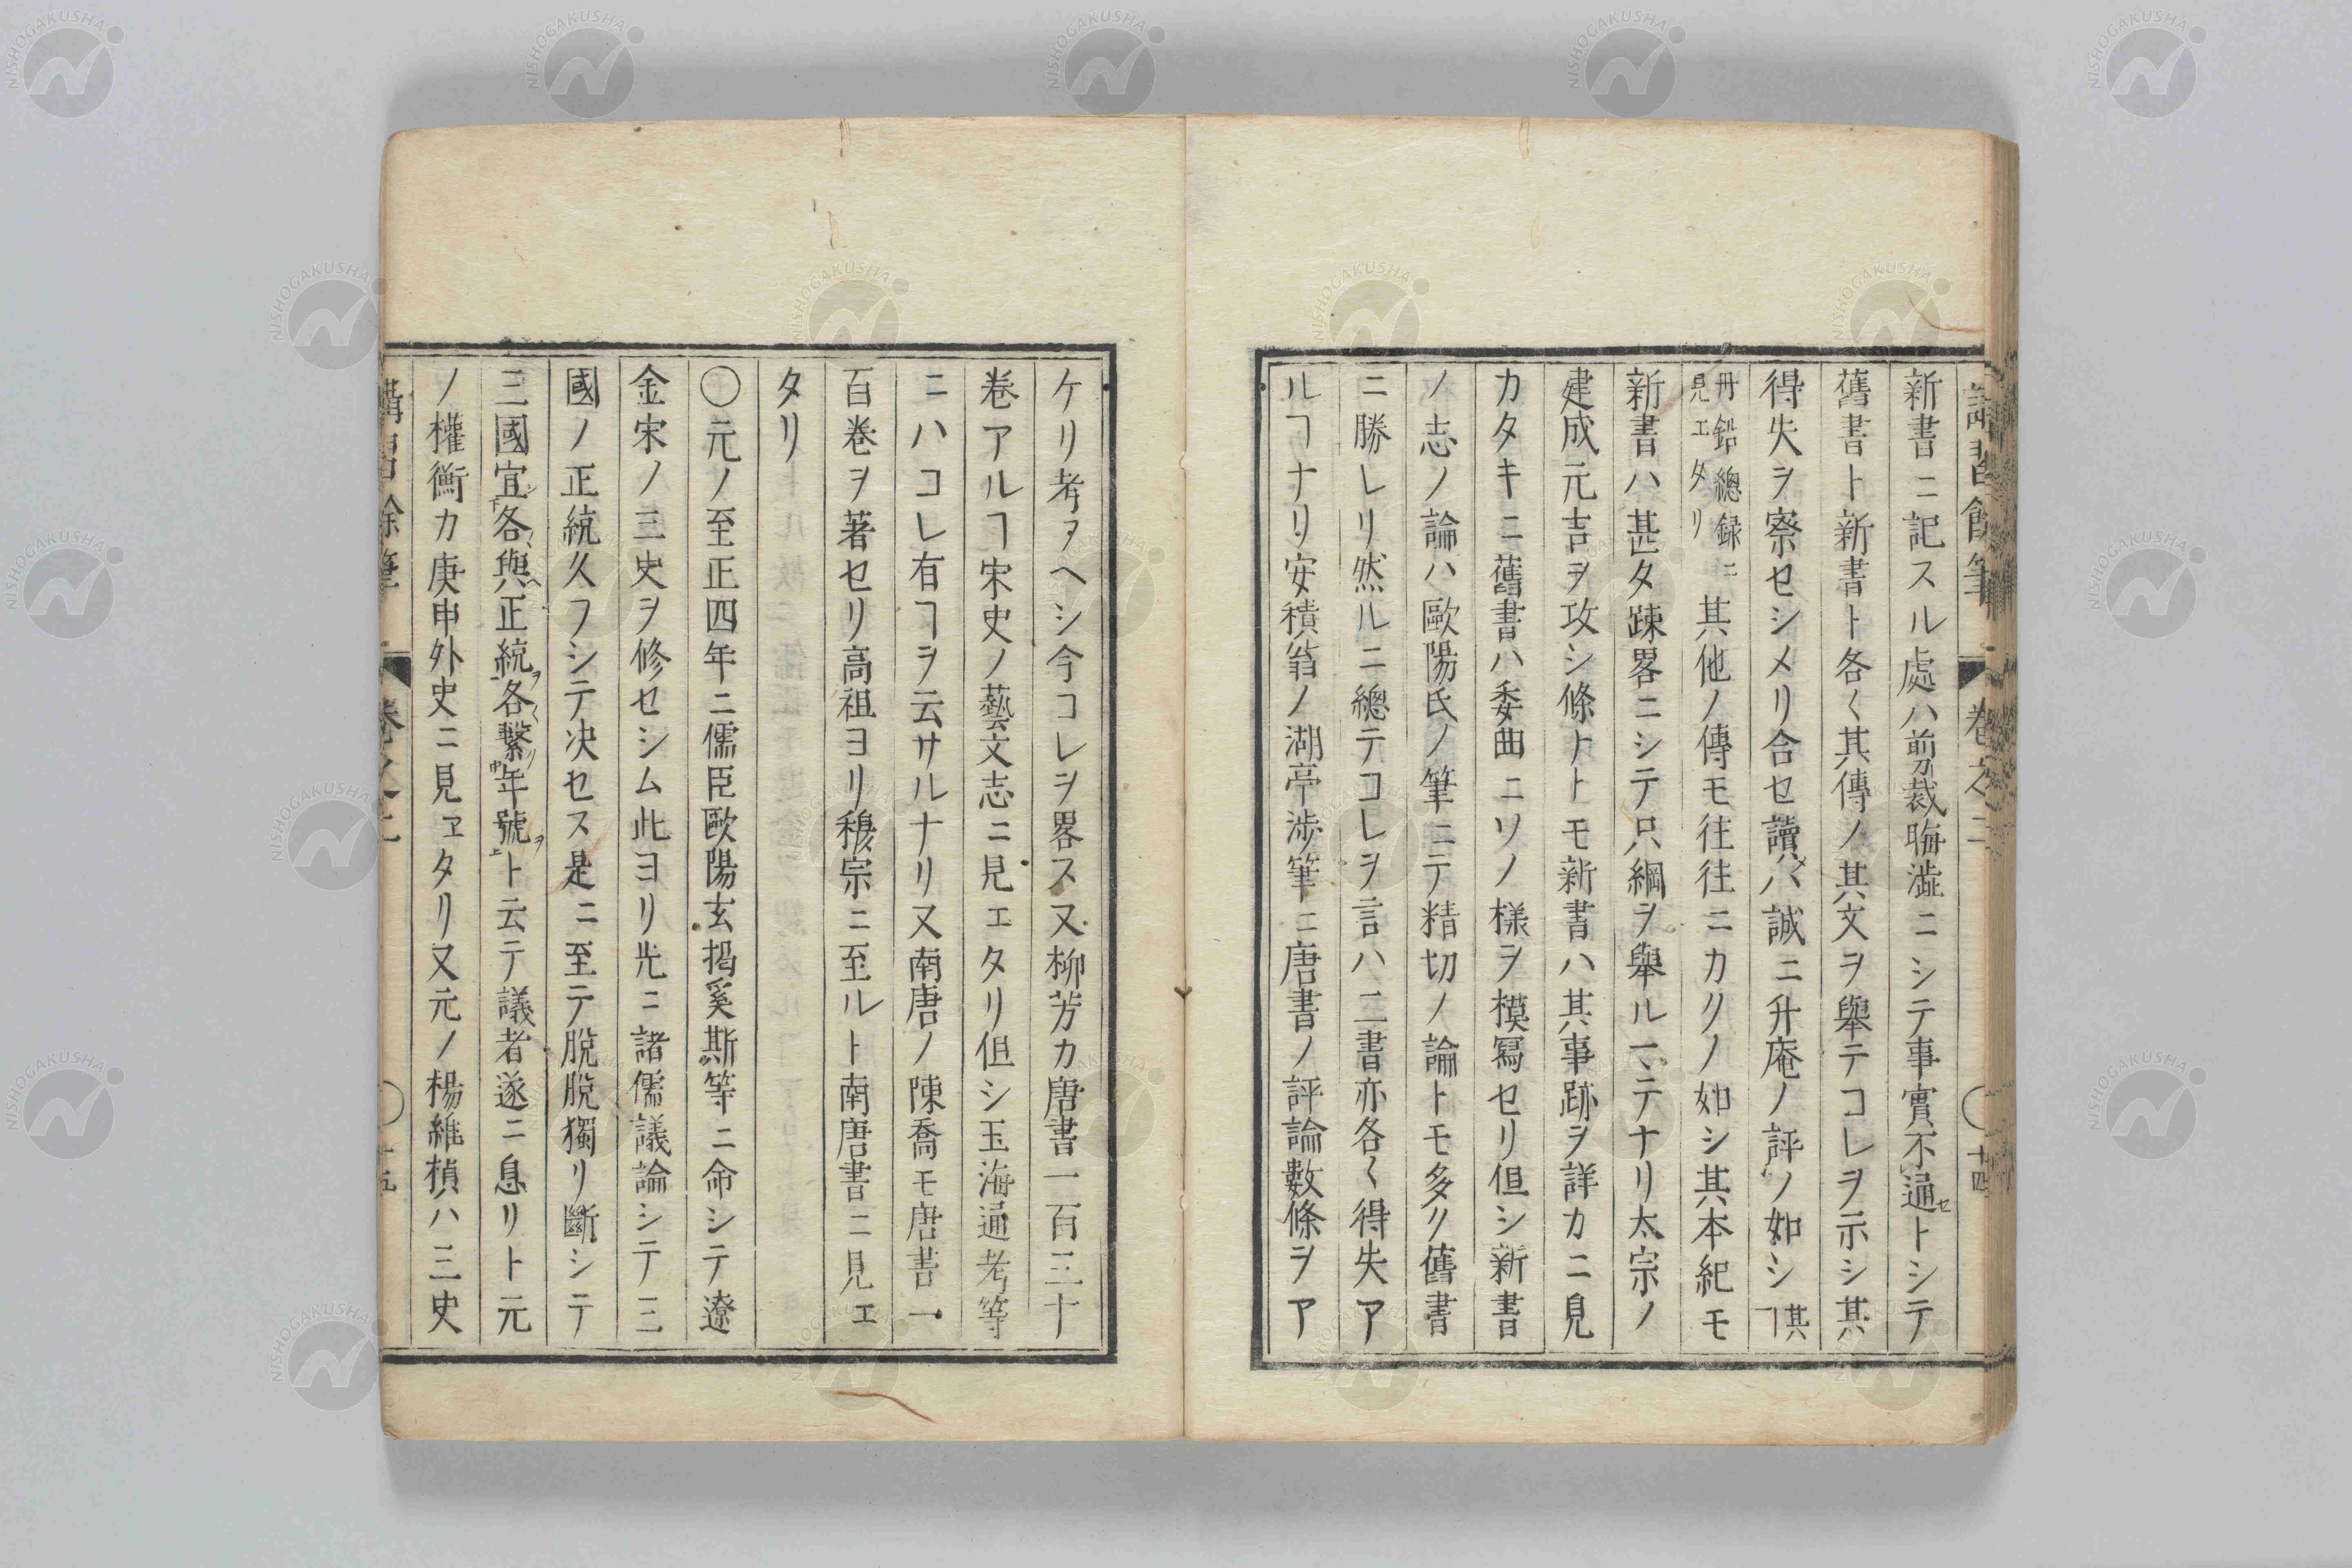 新書ニ記スル處ハ剪裁晦澁ニシテ事實不遍セトシテ
舊書ト新書ト各〱其傳ノ其文ヲ舉テコレヲ示シ其
得失ヲ察セシメリ合セ讀メハ誠ニ升庵ノ評ノ如シ其ヿ
丹鉛總録ニ見エタリ其他ノ傳モ往往ニカクノ如シ其本紀モ
新書ハ甚タ踈畧ニシテ只綱ヲ舉ルマテナリ太宗ノ
建成元吉ヲ攻シ條トトモ新書ハ其事跡ヲ詳カニ見
カタキニ舊書ハ委曲ニソノ様ヲ模冩セリ但シ新書
ノ志ノ論ハ歐陽氏ノ筆ニテ精切ノ論トモ多ク舊書
ニ勝レリ然ルニ總テコレヲ言ハ二書亦各〱得失ア
ルヿナリ安積翁ノ湖亭渉筆ニ唐書ノ評論數條ヲア
ケリ考フヘシ今コレヲ畧ス又柳芳カ唐書一百三十
巻アルヿ宋史ノ藝文志ニ見エタリ但シ玉海通考等
ニハコレ有ヿヲ云サルナリ又南唐ノ陳喬モ唐書一
百巻ヲ著セリ高祖ヨリ穆宗ニ至ルト南唐書ニ見エ
タリ
〇元ノ至正四年ニ儒臣歐陽玄掲奚斯等ニ命シテ遼
金宋ノ三史ヲ修セシム此ヨリ先ニ諸儒議論シテ三
國ノ正統久フシテ决セス是ニ至テ脱脱獨リ斷シテ
三國宜シ下各〱與ヘ二正統ヲ一各〱繋リ中年號ヲ上ト云テ議者遂ニ息リト元
ノ權衡カ庚申外史ニ見ヱタリ又元ノ楊維楨ハ三史
NISHOGAKUSHA